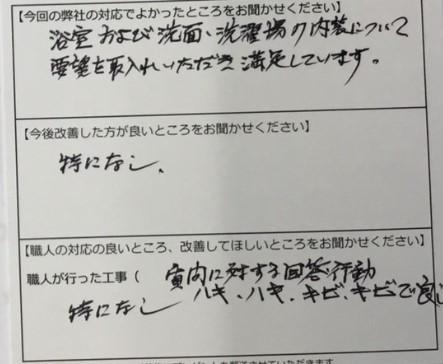 【今回の弊社の対応でよかったところをお聞かせください】
浴室および洗面、洗濯場の内装について
要望を取入れいただき満足しています。
【今後改善した方が良いところをお聞かせください】
特になし、
【職人の対応の良いところ、改善してほしいところをお聞かせください】
職人が行った工事（ 質内に対する回答行動
特になし ハキ、ハヤ、キビ、キビで良
いただきます